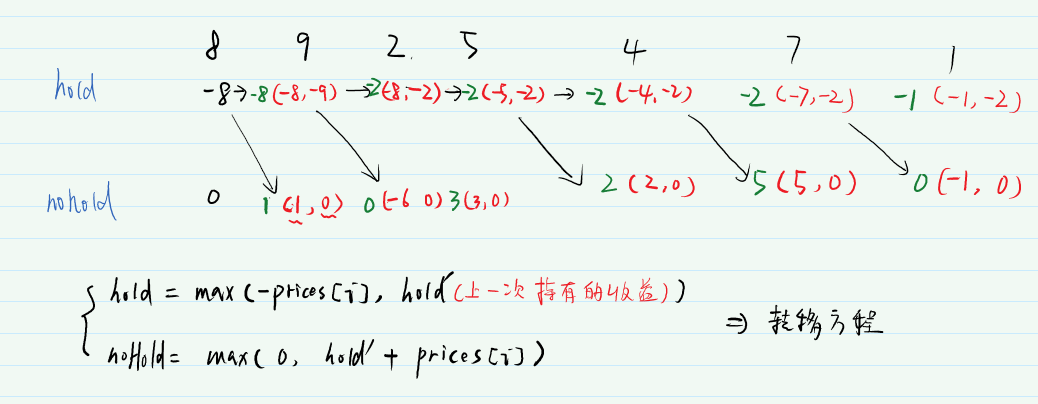 8 9 2. 5 4 7 1
hold -8 → -8(-8,-9) → -2(-8,-2) → -2(-5,-2) → -2(-4,-2) -2(-7,-2) -1(-1,-2)
nohold 0 1(1,0) 0(-6 0) 3(3,0) 2(2,0) 5(5,0) 0(-1, 0)
hold = max(-prices[i], hold'(上一次持有的收益))
⇒ 转移方程
noHold = max(0, hold' + prices[i])